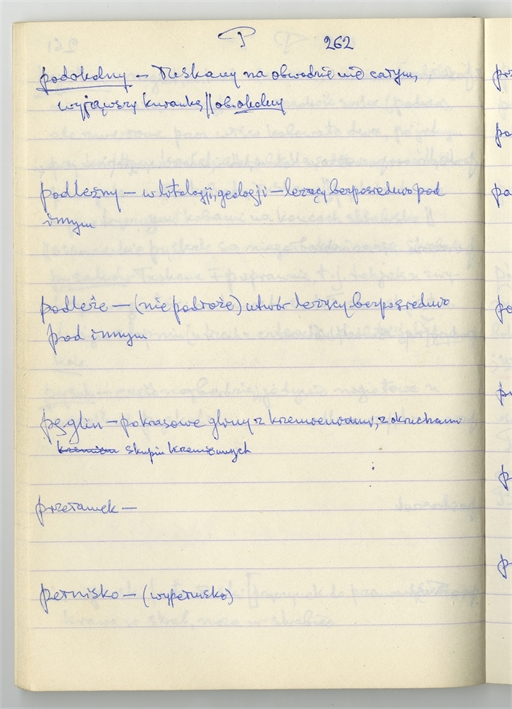 P 262
podokolny — na obwodnię nie całym,
wyjąwszy || obokolny
podleżny — w litologii, geologii — leżący bezpośrednio pod
innym
podleże — (nie podłoże) utwór leżący bezpośrednio
pod innym
pęglin — pokrasowe gliny z krzemieniami, z okruchami
skupin krzemionnych
przełamek —
petnisko — (wypetnisko)